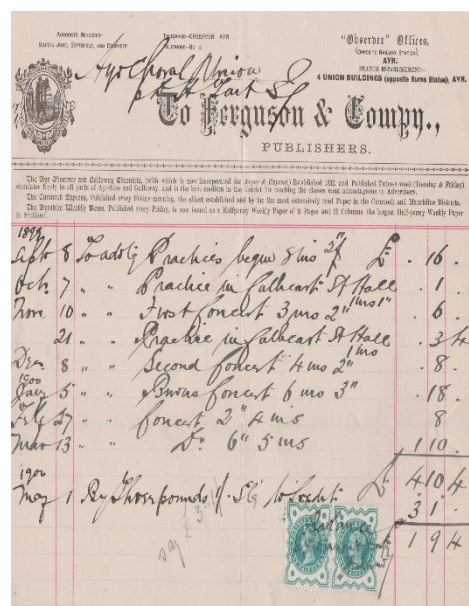 ACCOUNTS RENDERED
MARCH, JUNE, SEPTEMBER, AND DECEMBER
TELEGRAMS-OBSERVER AYR
TELEPHONE-No
"Observer" Offices,
(OPPOSITE RAILWAY STATION),
AYR.
BRANCH ESTABLISHMENT-
4 UNION BUILDINGS (opposite Burns Statue), AYR.
Ayr Choral Union
To Ferguson & Compy.,
PUBLISHERS.
The Ayr Observer and Galloway Chronicle, (with which is now incorporated the Argus & Express) Established 1832, and Published Twice-a-week (Tuesday & Friday)
circulates freely in all parts of Ayrshire and Galloway, and is the best medium in the district for reaching the classes most advantageous to Advertisers.
The Cumnock Express, Published every Friday morning, the oldest established and by far the most extensively read Paper in the Cumnock and Mauchline Districts.
The Ayrshire Weekly News, Published every Friday, is now issued as a Halfpenny Weekly Paper of 8 Pages and 48 Columns the largest Half-penny Weekly Paper
in Scotland.
1899
Sept 8 To advtg Practices begin 8 ins 2" £ . 16 .
Oct. 7 " " Practice in Cathcart St Hall . 1 .
Nov. 10 " " First Concert 3 ins 2" 1 ins 1" . 6 .
21 " " Practice in Cathcart St Hall . 3 4
1 ins
Dec 8 " " Second Concert 4 ins 2" . 8 .
1900
Jany 5 " " Burns Concert 6 ins 3" . 18 .
Feby 27 " " Concert 2" 4 ins 8
Mar 13 " " Do 6" 5 ins 1 10 .
1900 £ 4 10 4
May 1 By Three pounds 1/- Stg to Credit 3 1 .
say £3
Balance 1 9 4